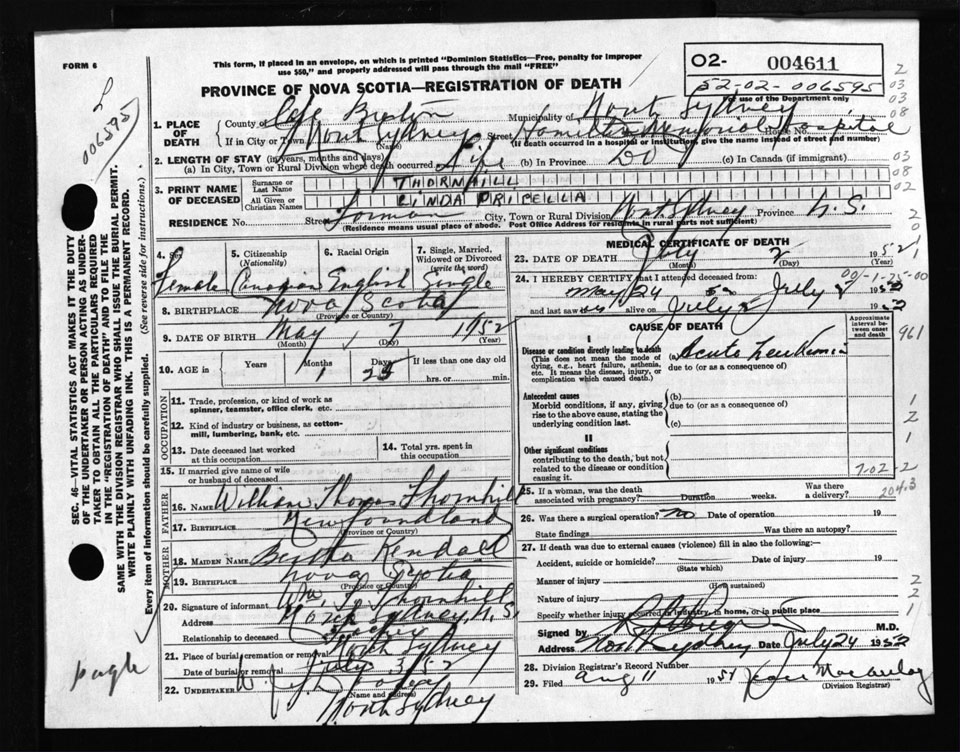 FORM 6
This form, if placed in an envelope, on which is printed "Dominion Statistics—Free, penalty for improper
use $50," and properly addressed will pass through the mail "FREE"
O2- 004611
52-02-006595
For use of the Department only
PROVINCE OF NOVA SCOTIA—REGISTRATION OF DEATH
006595
1. PLACE OF DEATH
County of Cape Breton Municipality of North Sydney
If in City or Town North Sydney Street Hamilton Memorial Hospital House No.
(Name) (If death occurred in a hospital or institution, give the name instead of street and number)
2. LENGTH OF STAY (in years, months and days)
(a) In City, Town or Rural Division where death occurred Life (b) In Province Do (c) In Canada (if immigrant)
3. PRINT NAME OF DECEASED
Surname or Last Name THORNHILL
All Given or Christian Names LINDA
RESIDENCE No. Street City, Town or Rural Division North Sydney Province N.S.
(Residence means usual place of abode. Post Office Address for residents in rural parts not sufficient)
4. Sex Female
5. Citizenship (Nationality) Canadian
6. Racial Origin English
7. Single, Married, Widowed or Divorced (write the word) Single
8. BIRTHPLACE Nova Scotia
(Province or Country)
9. DATE OF BIRTH May 7 1952
(Month) (Day)
10. AGE in Years Months 1 Days 25 If less than one day old
hrs. or min.
OCCUPATION
11. Trade, profession, or kind of work as
spinner, teamster, office clerk, etc.
12. Kind of industry or business, as cotton-
mill, lumbering, bank, etc.
13. Date deceased last worked
at this occupation
14. Total yrs. spent in
this occupation
15. If married give name of wife
or husband of deceased
FATHER
16. NAME William Thomas Thornhill
17. BIRTHPLACE Newfoundland
(Province or Country)
MOTHER
18. MAIDEN NAME Bertha Kendall
19. BIRTHPLACE Nova Scotia
(Province or Country)
20. Signature of informant Wm. T. Thornhill
Address North Sydney, N.S.
Relationship to deceased Father
21. Place of burial cremation or removal North Sydney
Date of burial July 3/52
22. UNDERTAKER
(Name and address)
North Sydney
MEDICAL CERTIFICATE OF DEATH
23. DATE OF DEATH July 2 1952
(Month) (Day)
24. I HEREBY CERTIFY that I attended deceased from:
May 24 52 to July 2 1952
and last saw her alive on July 2 1952
CAUSE OF DEATH
Approximate interval between onset and death
I
Disease or condition directly leading to death
(This does not mean the mode of
dying, e.g., heart failure, asthenia,
etc. It means the disease, injury, or
complication which caused death.)
Acute Leukemia
due to (or as a consequence of)
Antecedent causes
Morbid conditions, if any, giving
rise to the above cause, stating the
underlying condition last.
(b)
due to (or as a consequence of)
(c)
II
Other significant conditions
contributing to the death, but not
related to the disease or condition
causing it.
7-02-2
204.3
25. If a woman, was the death
associated with pregnancy? Duration weeks. Was there
a delivery?
26. Was there a surgical operation? no Date of operation 19
State findings Was there an autopsy?
27. If death was due to external causes (violence) fill in also the following:
Accident, suicide or homicide? Date of injury 19
(State which)
Manner of injury
(How sustained)
Nature of injury
Specify whether injury occurred in industry, in home, or in public place
Signed by M.D.
Address North Sydney Date July 24 1952
28. Division Registrar's Record Number
29. Filed Aug 11 195
(Division Registrar)
SEC. 46—VITAL STATISTICS ACT MAKES IT THE DUTY
OF THE UNDERTAKER OR PERSON ACTING AS UNDER-
TAKER TO OBTAIN ALL THE PARTICULARS REQUIRED
IN THE "REGISTRATION OF DEATH" AND TO FILE THE
SAME WITH THE DIVISION REGISTRAR WHO SHALL ISSUE THE BURIAL PERMIT.
WRITE PLAINLY WITH UNFADING INK. THIS IS A PERMANENT RECORD.
Every item of information should be carefully supplied. (See reverse side for instructions.)